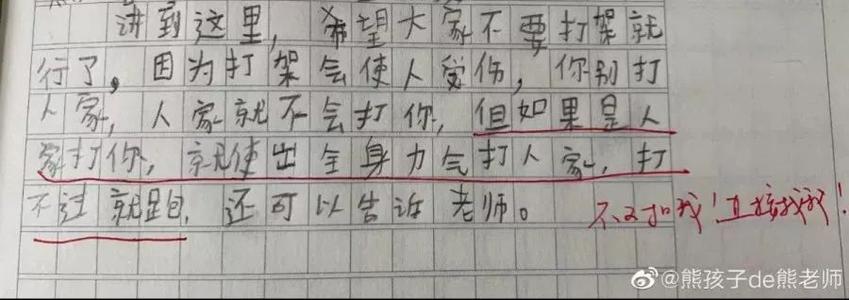 讲到这里，希望大家不要打架就
行了，因为打架会使人受伤，你别打
人家，人家就不会打你，但如果是人
家打你，就使出全身力气打人家，打
不过就跑，还可以告诉老师。
直接找我！
@熊孩子de熊老师